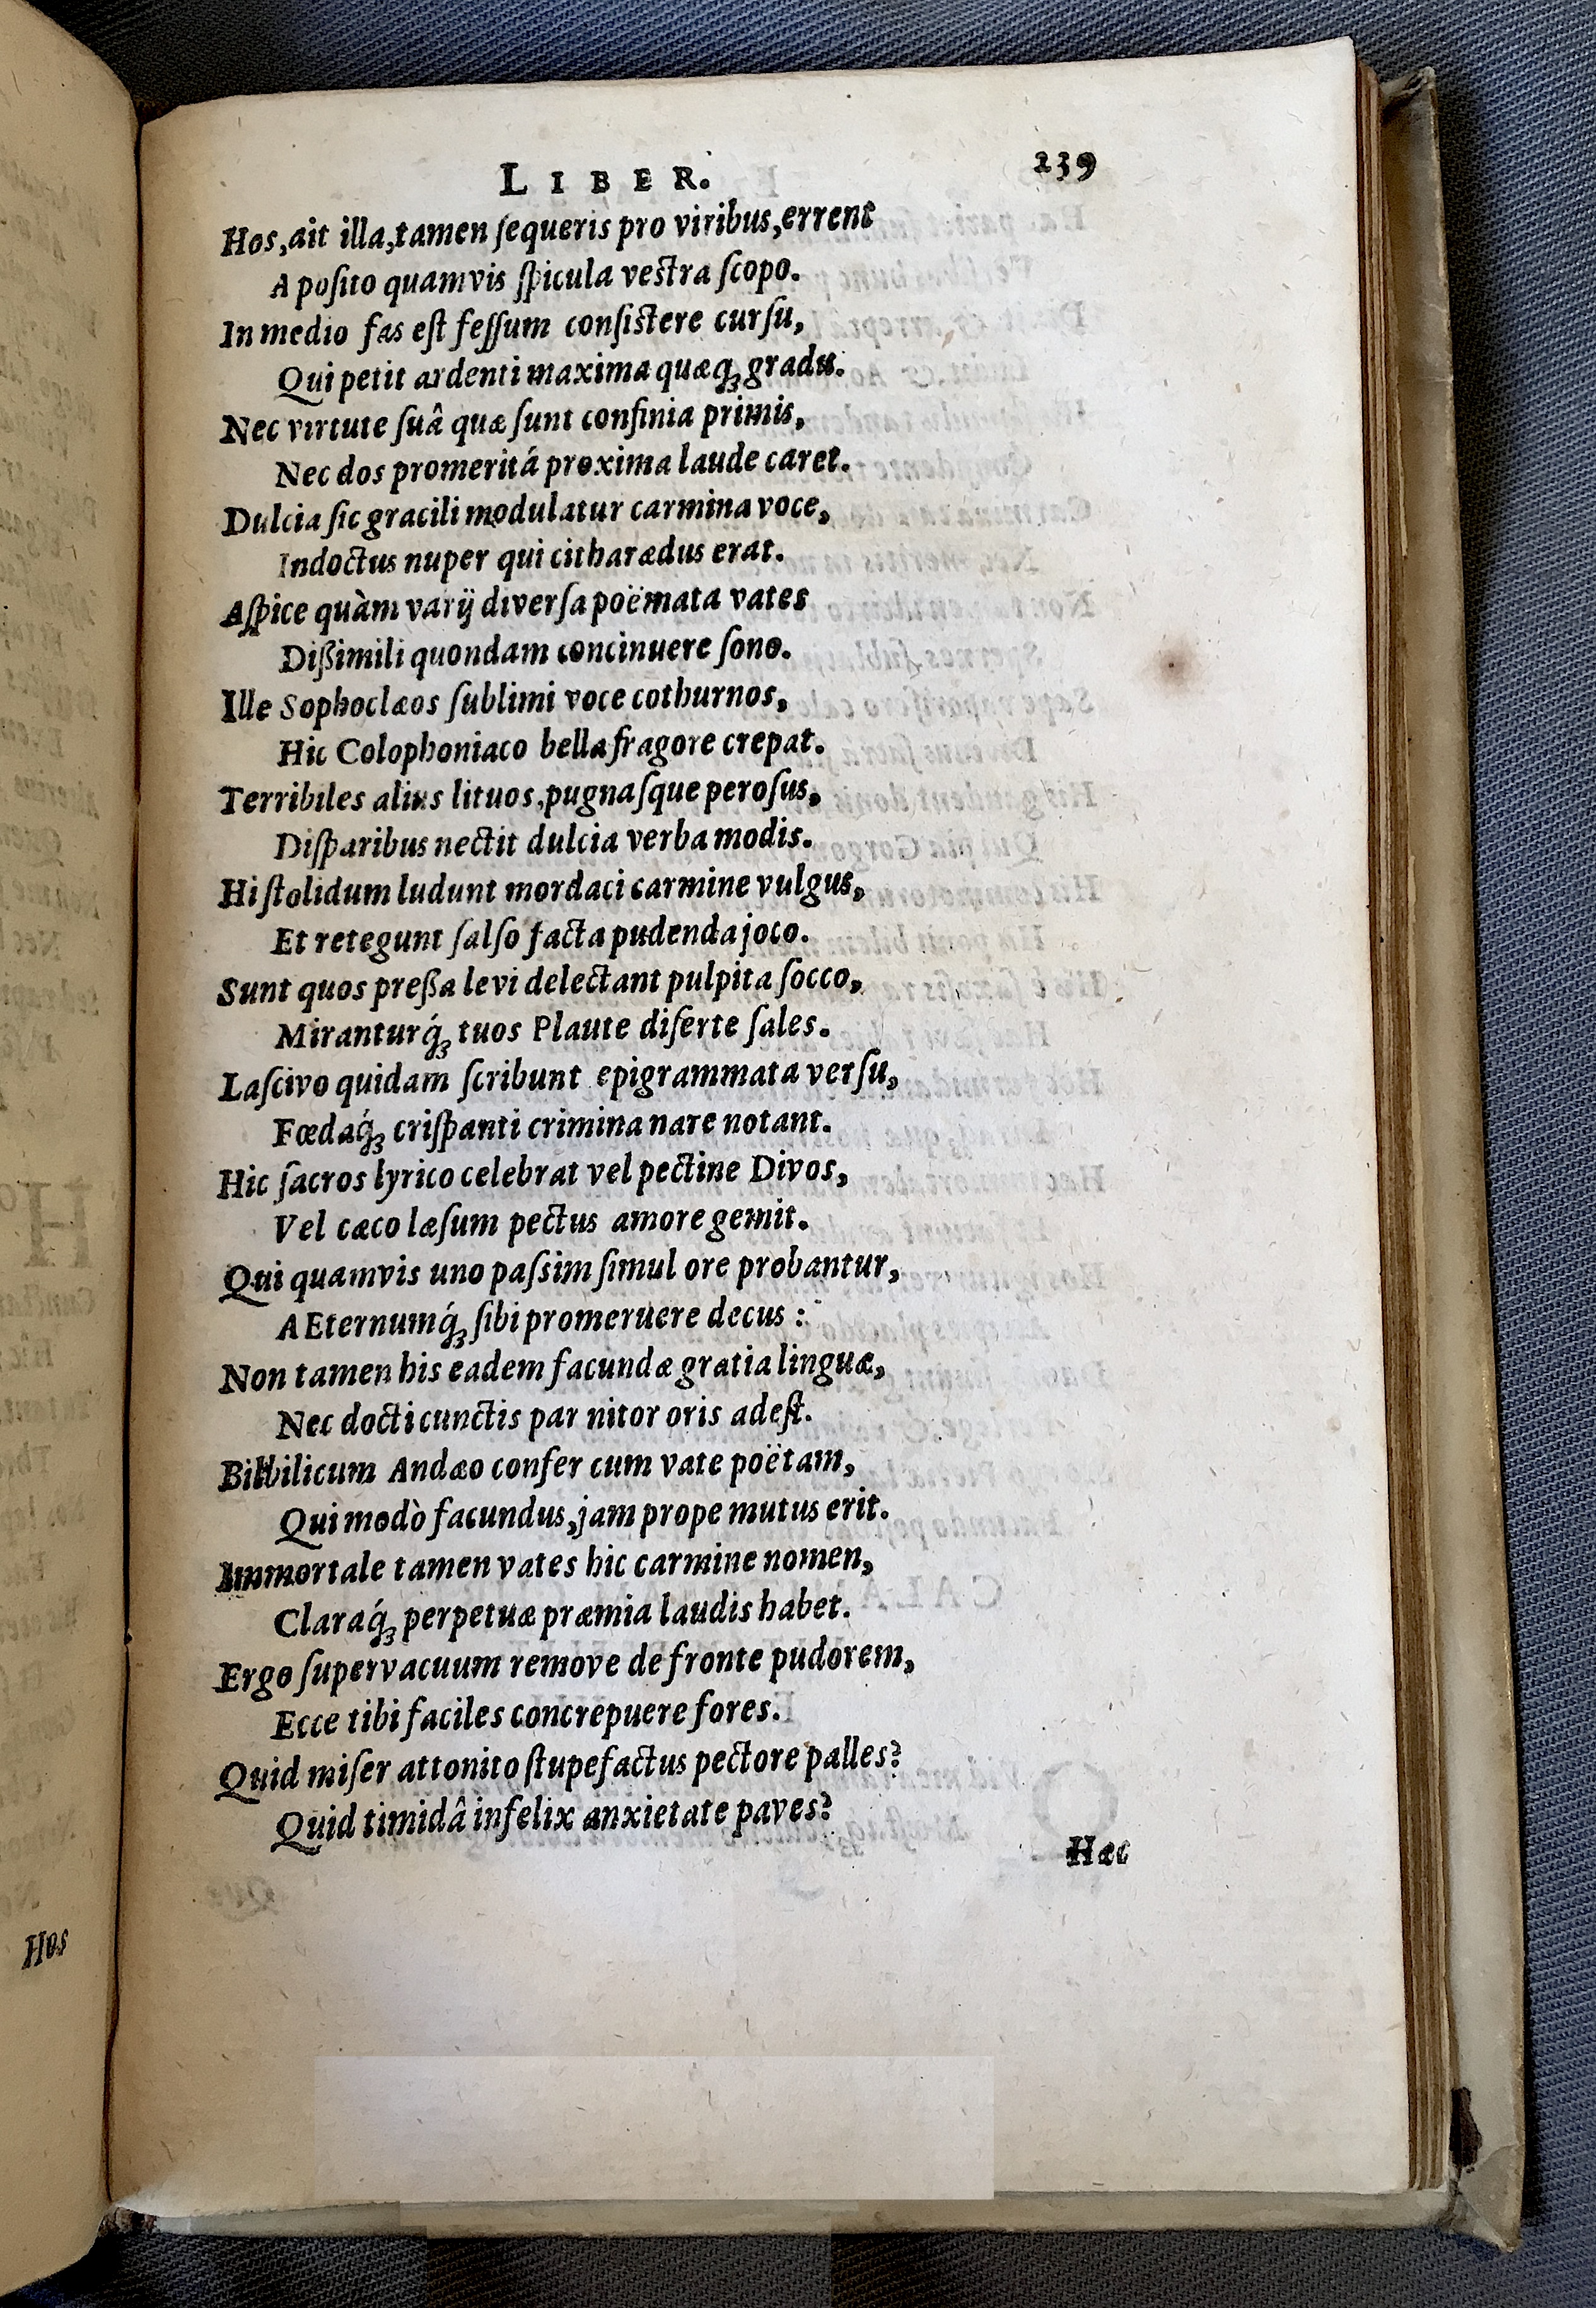 LIBER. 239
Hos, ait illa, tamen ſequeris pro viribus, errent
A poſito quamvis ſpicula veſtra ſcopo.
In medio fas eſt feſſum conſiſtere curſu,
Qui petit ardenti maxima quæq́ꝫ gradu.
Nec virtute ſuâ quæ ſunt confinia primis,
Nec dos promeritá proxima laude caret.
Dulcia ſic gracili modulatur carmina voce,
Indoctus nuper qui citharædus erat.
Aſpice quàm varij diverſa poëmata vates
Dißimili quondam concinuere ſono.
Ille Sophoclæos ſublimi voce cothurnos,
Hic Colophoniaco bella fragore crepat.
Terribiles alius lituos, pugnaſque peroſus,
Diſparibus nectit dulcia verba modis.
Hi ſtolidum ludunt mordaci carmine vulgus,
Et retegunt ſalſo facta pudenda joco.
Sunt quos preßa levi delectant pulpita ſocco,
Miranturq́ꝫ tuos Plaute diſerte ſales.
Laſcivo quidam ſcribunt epigrammata verſu,
Fœdaq́ꝫ criſpanti crimina nare notant.
Hic ſacros lyrico celebrat vel pectine Divos,
Vel cæco læſum pectus amore gemit.
Qui quamvis uno paſsim ſimul ore probantur,
AEternumq́ꝫ ſibi promeruere decus:
Non tamen his eadem facundæ gratia linguæ,
Nec docti cunctis par nitor oris adeſt.
Andæo confer cum vate poëtam,
Qui modò facundus, jam prope mutus erit.
Immortale tamen vates hic carmine nomen,
Claraq́ꝫ perpetuæ præmia laudis habet.
Ergo ſupervacuum remove de fronte pudorem,
Ecce tibi faciles concrepuere fores.
Quid miſer attonito ſtupefactus pectore palles?
Quid timidâ infelix anxietate paves?
Hæc
Hos